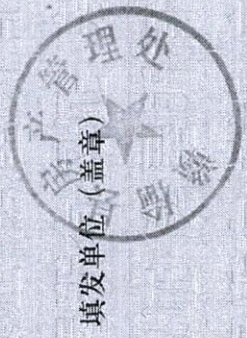 填发单位（盖章）
房产管理处